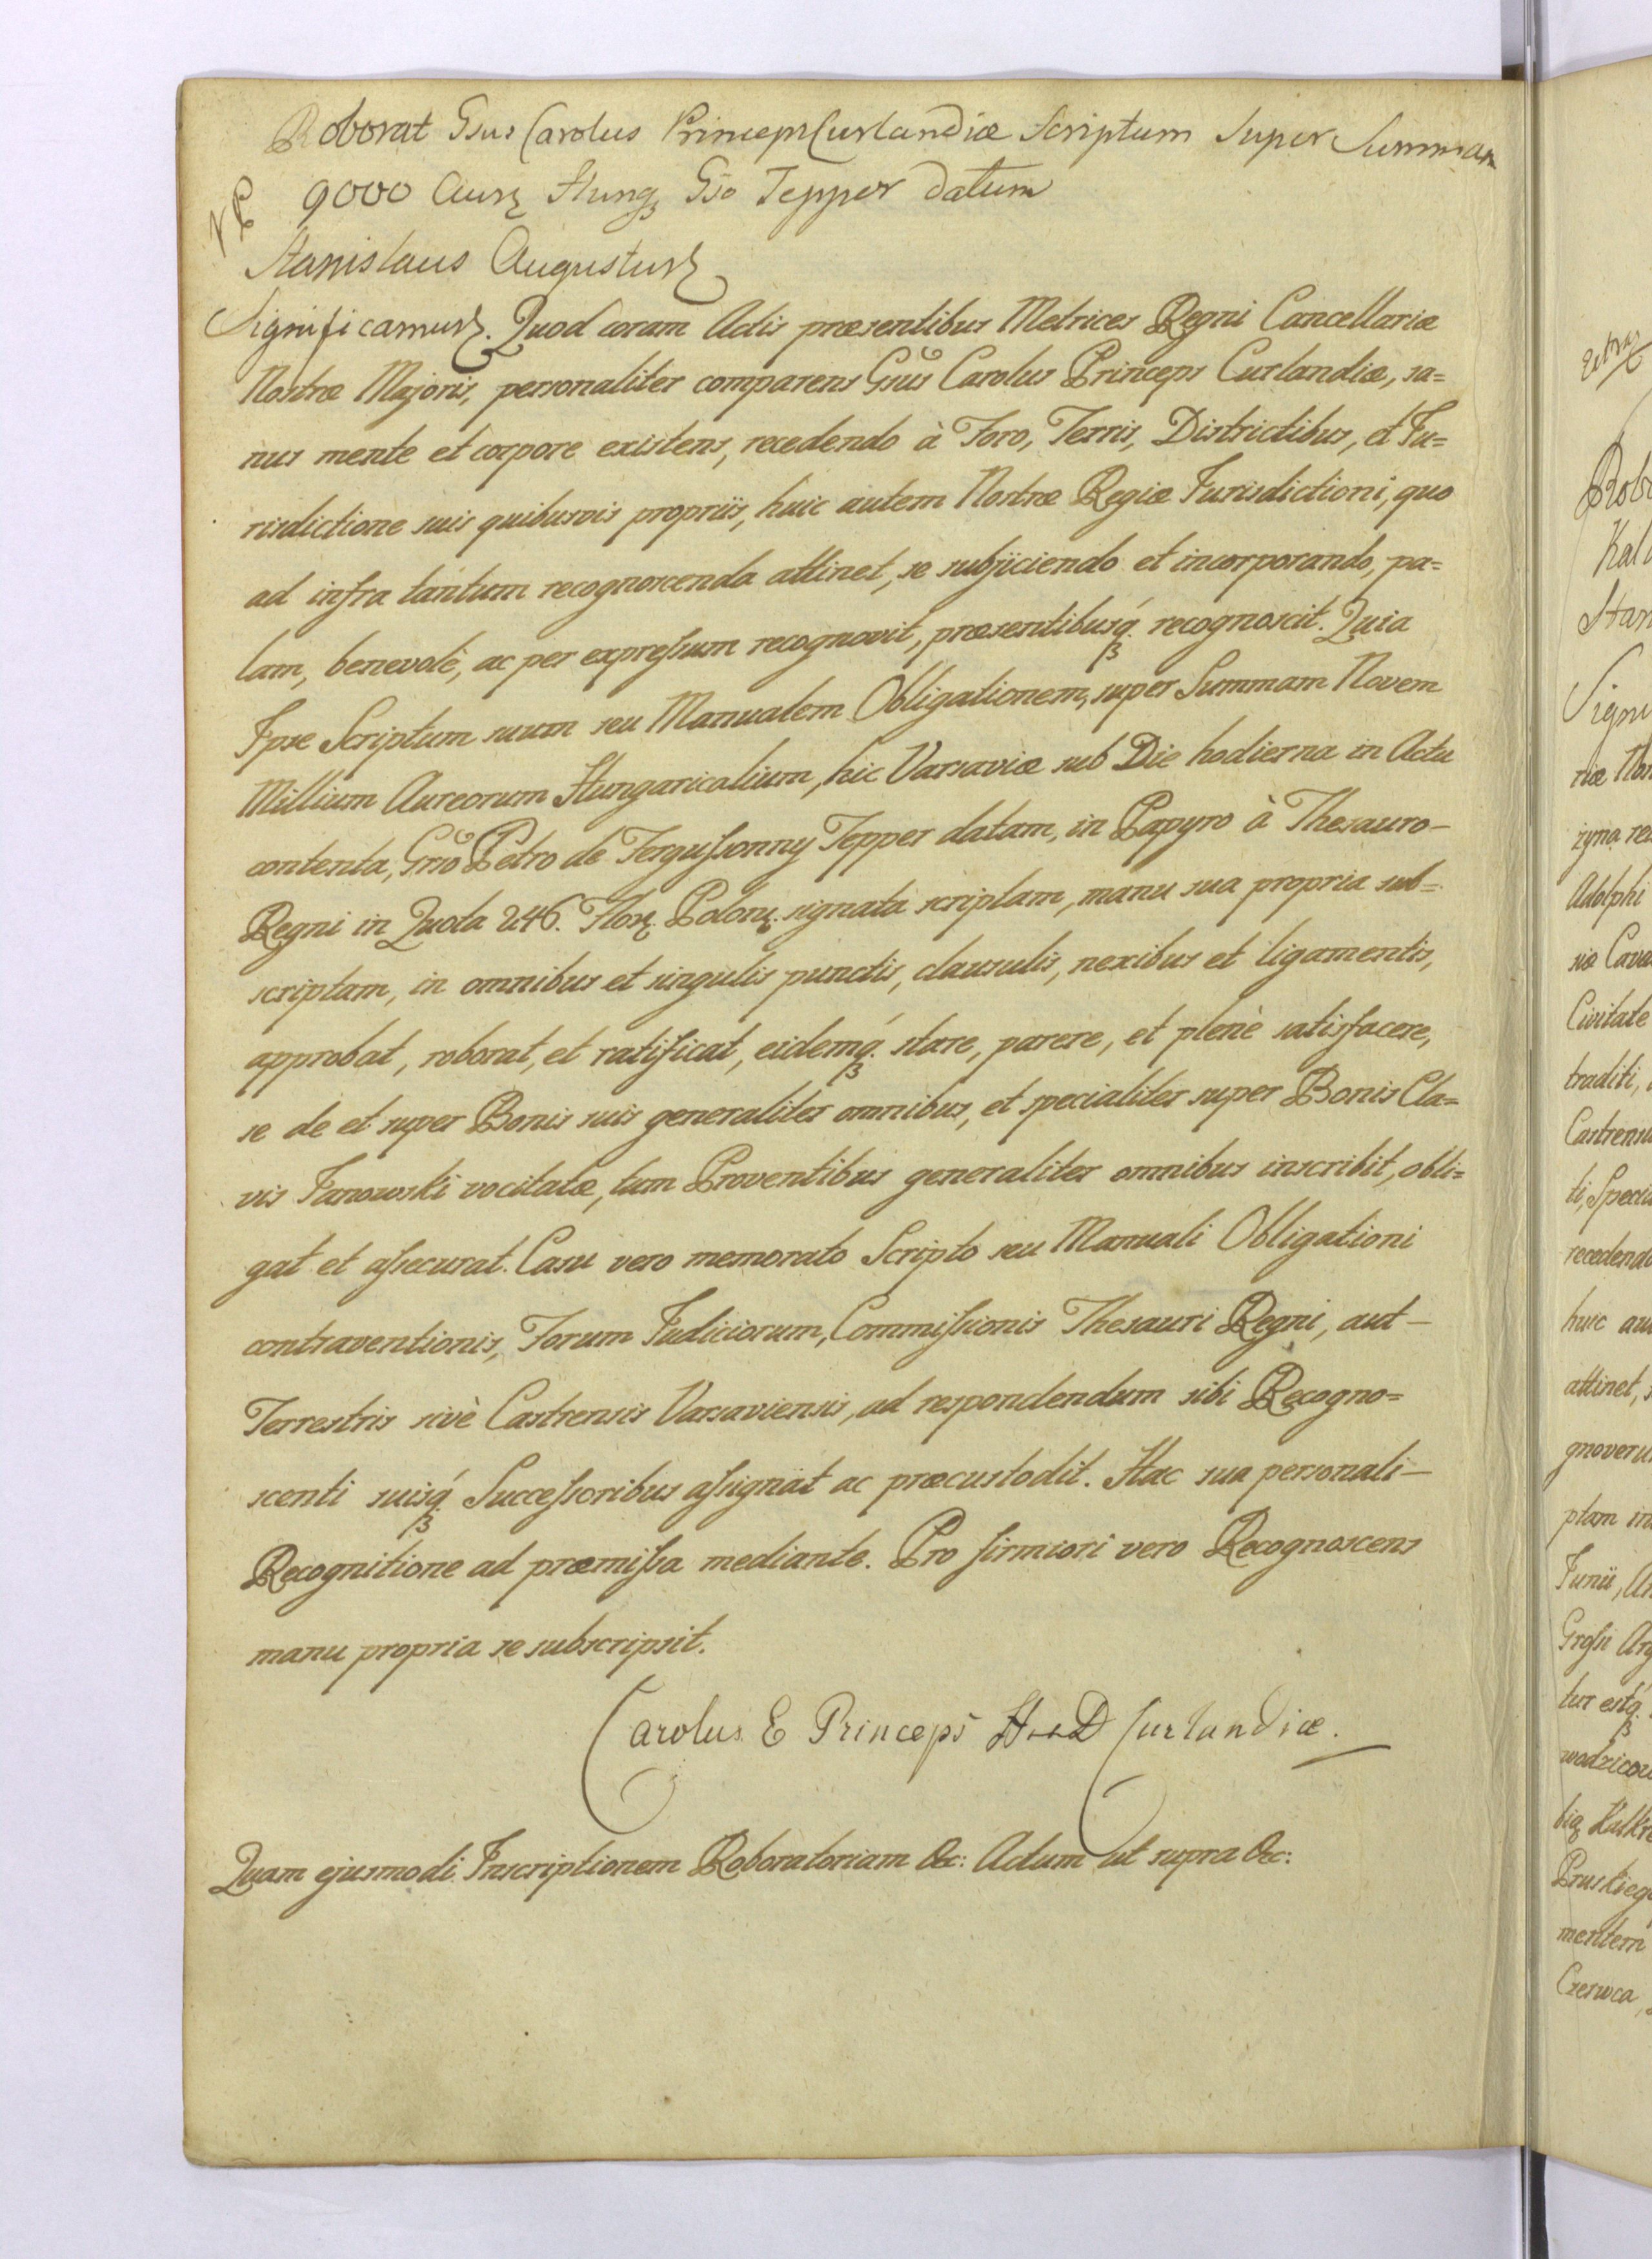 Roborat Gsus Carolus Princeps Curlandiæ Scriptum super Summam
9000 Aurę Hungȝ Gso Tepper datum
Stanislaus Augustus
Significamus. Quod coram Actis præsentibus Metrices Regni Cancellariæ
Nostræ Majoris, personaliter comparens Gsus Carolus Princeps Curlandiæ, sa=
nus mente et corpore existens, recedendo à Foro, Terris, Districtibus, et Ju=
risdictione suis quibusvis propriis, huic autem Nostræ Regiæ Jurisdictioni, quo
ad infra tantum recognoscenda attinet, se subjiciendo et incorporando, pa=
lam, benevolè, ac per expreſsum recognovit, præsentibusq́ȝ recognoscit. Quia
Ipse Scriptum suum seu Manualem Obligationem, super Summam Novem
Millium Aureorum Hungaricalium, hic Varsaviæ sub Die hodierna in Actu
contenta, Grso Petro de Ferguſsonny Tepper datam, in Papyro à Thesauro—
Regni in Quota 246. Florę. Polonę. signata scriptam, manu sua propria sub=
scriptam, in omnibus et singulis punctis, clausulis, nexibus et ligamentis,
approbat, roborat, et ratificat, eidemq́ȝ stare, parere, et plenè satisfacere,
se de et super Bonis suis generaliter omnibus, et specialiter super Bonis Cla=
vis Janowski vocitatæ, tum Proventibus generaliter omnibus inscribit, obli=
gat et aſsecurat. Casu vero memorato Scripto seu Manuali Obligationi
contraventionis, Forum Judiciorum, Commiſsionis Thesauri Regni, aut—
Terrestris sivè Castrensis Varsaviensis, ad respondendum sibi Recogno=
scenti suisq́ȝ Succeſsoribus aſsignat ac præcustodit. Hac sua personali—
Recognitione ad præmiſsa mediante. Pro firmiori vero Recognoscens
manu propria se subscripsit.
Carolus E Princeps Curlandiæ.
Quam ejusmodi Inscriptionem Roboratoriam &c: Actum ut supra &c:
Robo
Kal
Stan
Signi
riæ Nos
żyna re
Adolphi
Civitate
traditi,
Castrens
ti, Specia
recedendo
huic au
attinet, s
gnoveru
ptam in
Junii, An
wodzicow
Pruskiego
mentem
Czerwca,